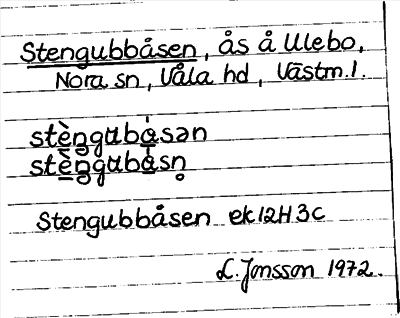 Stengubbåsen, ås å Ulebo,
Nora sn, Våla hd, Västm.l.
stèn̲gɯbá̲sən
stèn̲gɯbá̲sn̥
Stengubbåsen ek 12H 3c
L. Jonsson 1972.